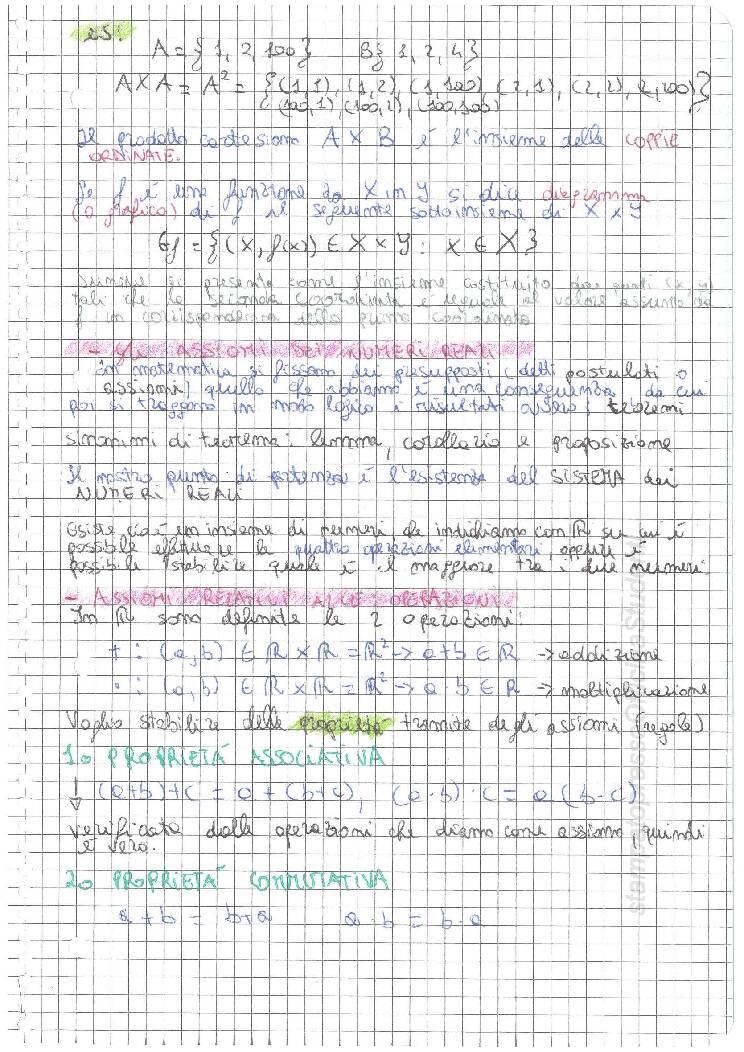 es:
A = { 1, 2, 100 } B { 1, 2, 4 }
A X A = A² = { (1,1), (1,2), (1,100) (2,1), (2,2), (2,100) }
{ (100,1), (100,2), (100,100)
Il prodotto cartesiano A X B è l'insieme delle COPPIE
ORDINATE.
Se f è una funzione da X in Y si dice diagramma
(o grafico) di f il seguente sottoinsieme di X x Y
Gf = { (x, f(x)) ∈ X x Y : x ∈ X }
si presenta come l'insieme costituito dai punti (x, y)
tali che la seconda coordinata è uguale al valore assunto da
f in corrispondenza della prima coordinata
- Gli ASSIOMI DEI NUMERI REALI
In matematica si fissano dei presupposti (detti postulati o
assiomi) quello che abbiamo è una conseguenza, da cui
poi si traggono in modo logico i risultati ovvero i teoremi
sinonimi di teorema: lemma, corollario e proposizione
Il nostro punto di partenza è l'esistenza del SISTEMA dei
NUMERI REALI
Esiste cioè un insieme di numeri, che indichiamo con ℝ su cui è
possibile effettuare le quattro operazioni elementari, oppure è
possibile stabilire quale è il maggiore tra due numeri.
- ASSIOMI RELATIVI ALLE OPERAZIONI
In ℝ sono definite le 2 operazioni:
+ : (a, b) ∈ ℝ x ℝ = ℝ² → a+b ∈ ℝ → addizione
· : (a, b) ∈ ℝ x ℝ = ℝ² → a · b ∈ ℝ → moltiplicazione
Voglio stabilire delle proprietà tramite degli assiomi (regole)
1o PROPRIETÀ ASSOCIATIVA
(a+b)+c = a + (b+c), (a·b)·c = a (b·c)
↓
verificata dalle operazioni che diamo come assioma, quindi
è vero.
2o PROPRIETÀ COMMUTATIVA
a + b = b+a a · b = b·a
stampato da OssessioneSicura